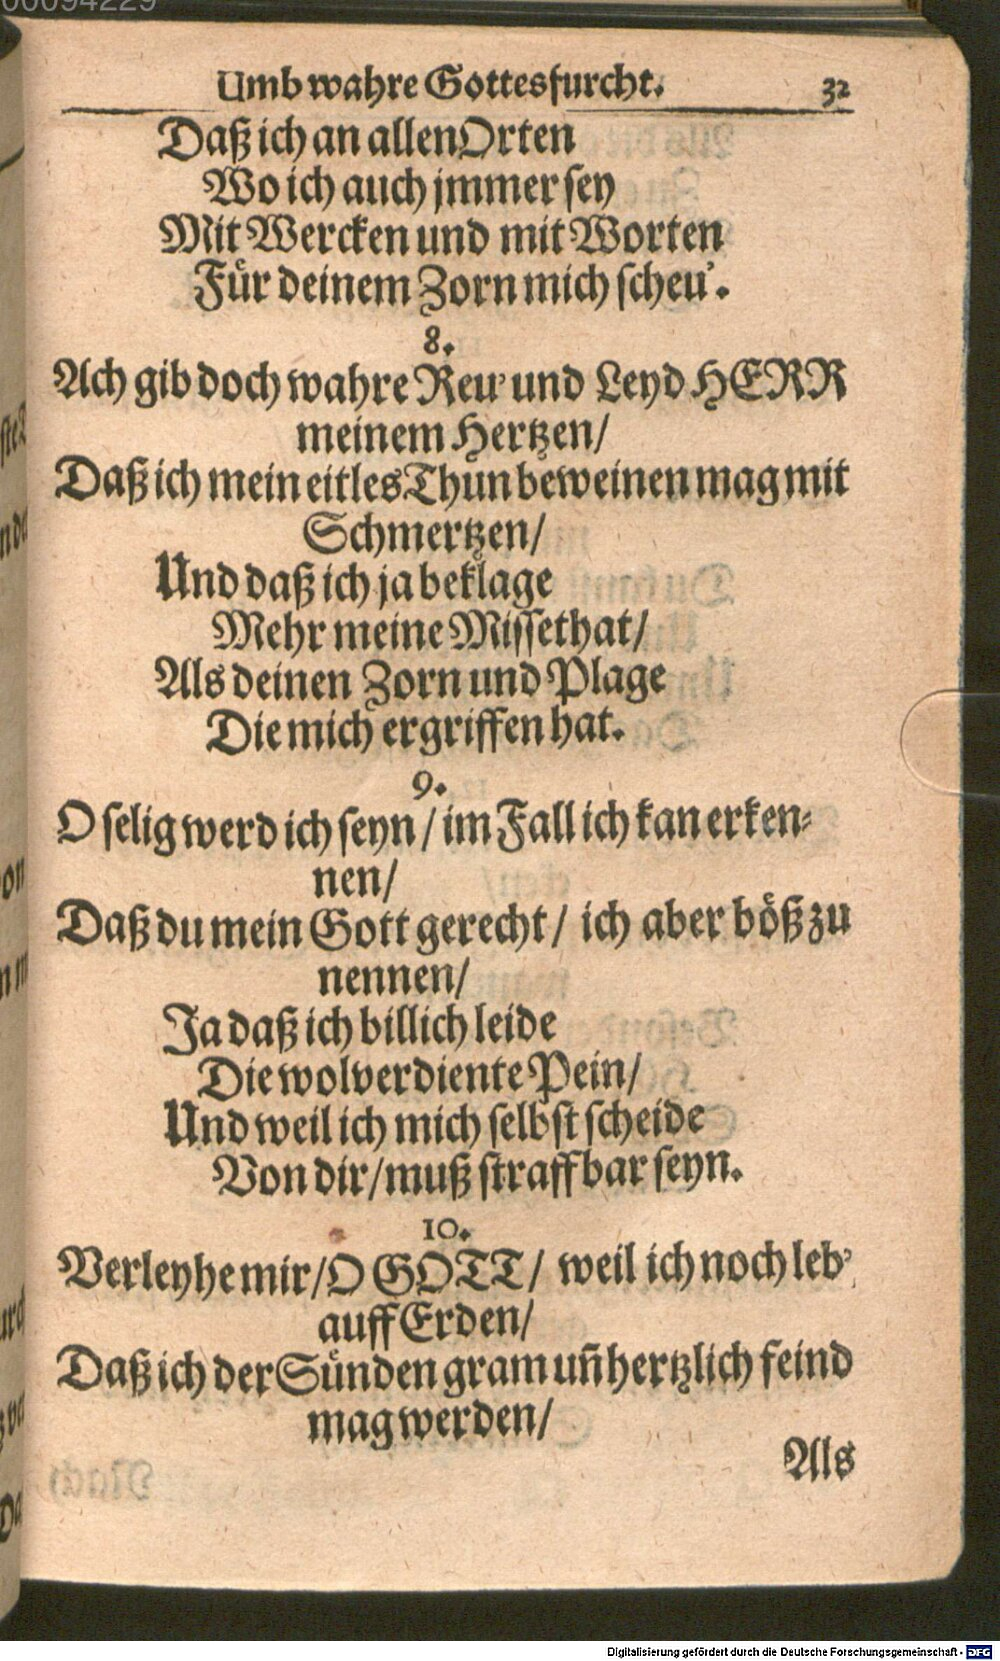 00094229
Umb wahre Gottesfurcht. 32
Daß ich an allen Orten
Wo ich auch jmmer sey
Mit Wercken und mit Worten
Für deinem Zorn mich scheu'.
8.
Ach gib doch wahre Reu' und Leyd HERR
meinem Hertzen/
Daß ich mein eitles Thun beweinen mag mit
Schmertzen/
Und daß ich ja beklage
Mehr meine Missethat/
Als deinen Zorn und Plage
Die mich ergriffen hat.
9.
O selig werd ich seyn/ im Fall ich kan erken-
nen/
Daß du mein Gott gerecht/ ich aber böß zu
nennen/
Ja daß ich billich leide
Die wolverdiente Pein/
Und weil ich mich selbst scheide
Von dir/ muß straffbar seyn.
10.
Verleyhe mir/ O GOTT/ weil ich noch leb'
auff Erden/
Daß ich der Sünden gram uñ hertzlich feind
mag werden/
Als
Digitalisierung gefördert durch die Deutsche Forschungsgemeinschaft - DFG